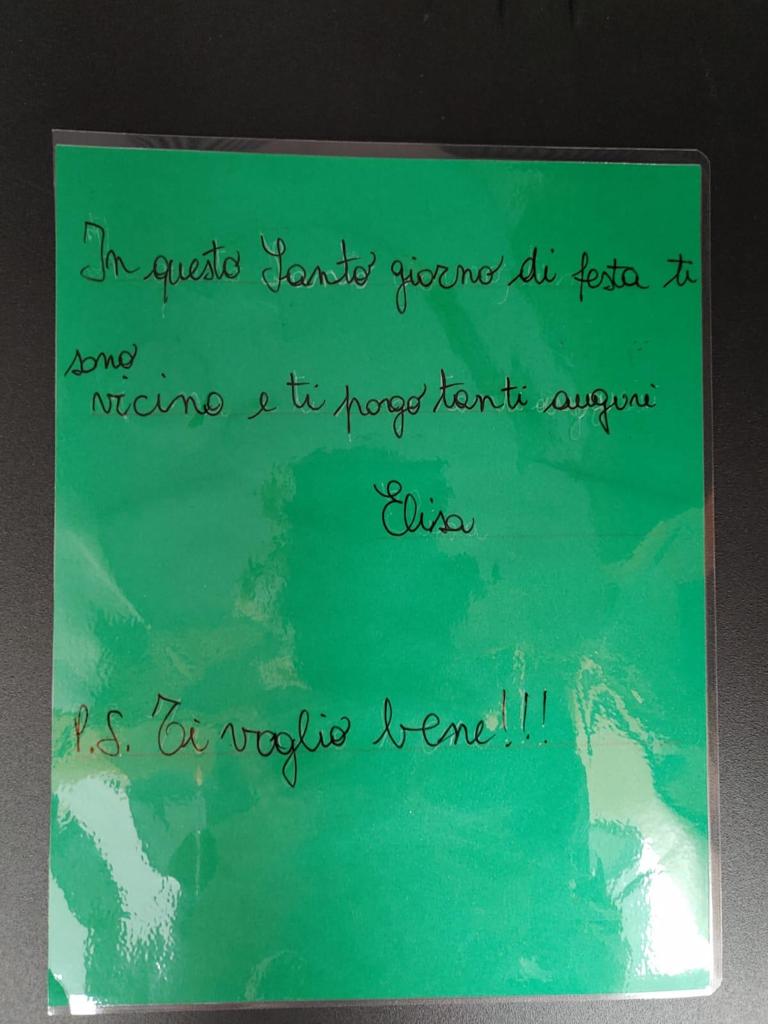 In questo Santo giorno di festa ti
sono
vicino e ti pogo tanti auguri
Elisa
P.S. Ti voglio bene!!!